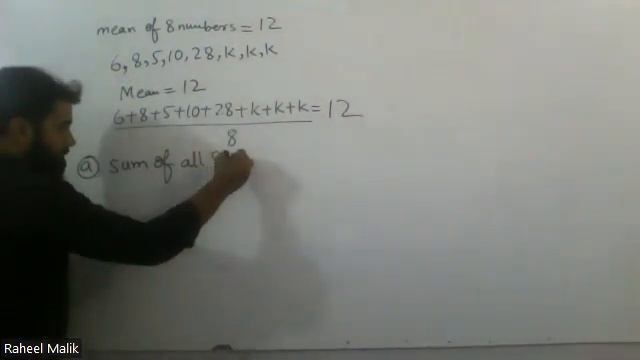 mean of 8 numbers = 12
6, 8, 5, 10, 28, k, k, k
Mean = 12
6+8+5+10+28+k+k+k = 12
8
a sum of all
Raheel Malik